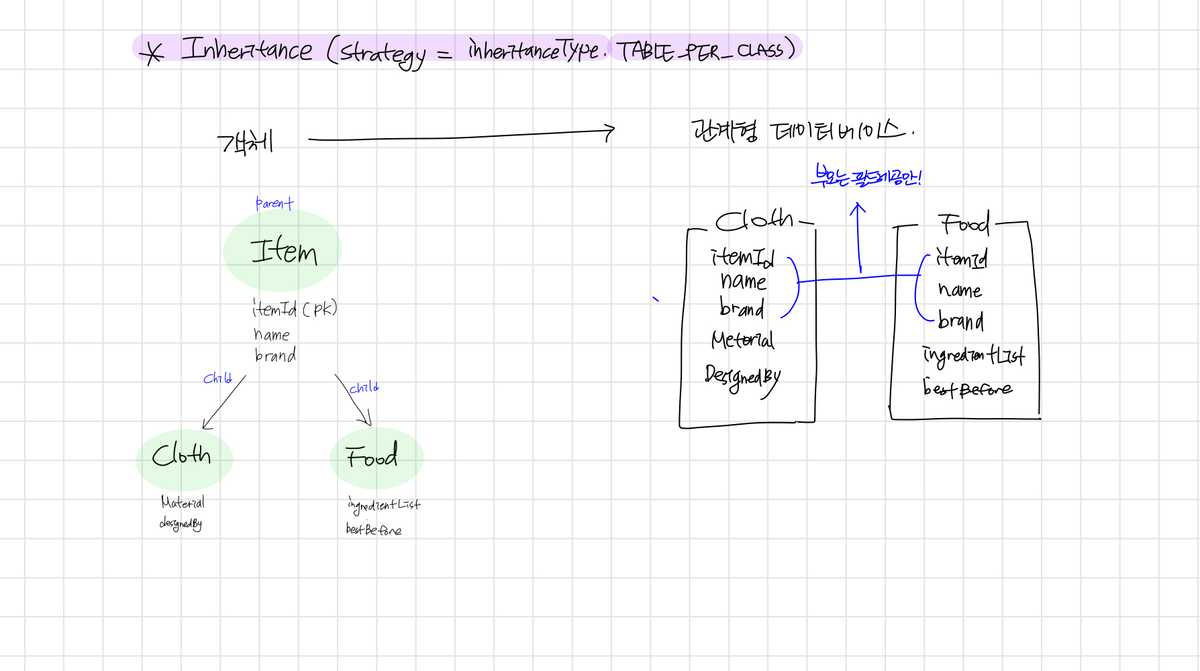 * Inheritance (strategy = inheritanceType. TABLE_PER_CLASS)
객체
관계형 데이터베이스.
parent
Item
itemId (pk)
name
brand
child
child
Cloth
Material
designedBy
Food
ingredientList
bestBefore
부모는 필드제공만!
Cloth
itemId
name
brand
Meterial
DesignedBy
Food
itemId
name
brand
ingredientList
bestBefore